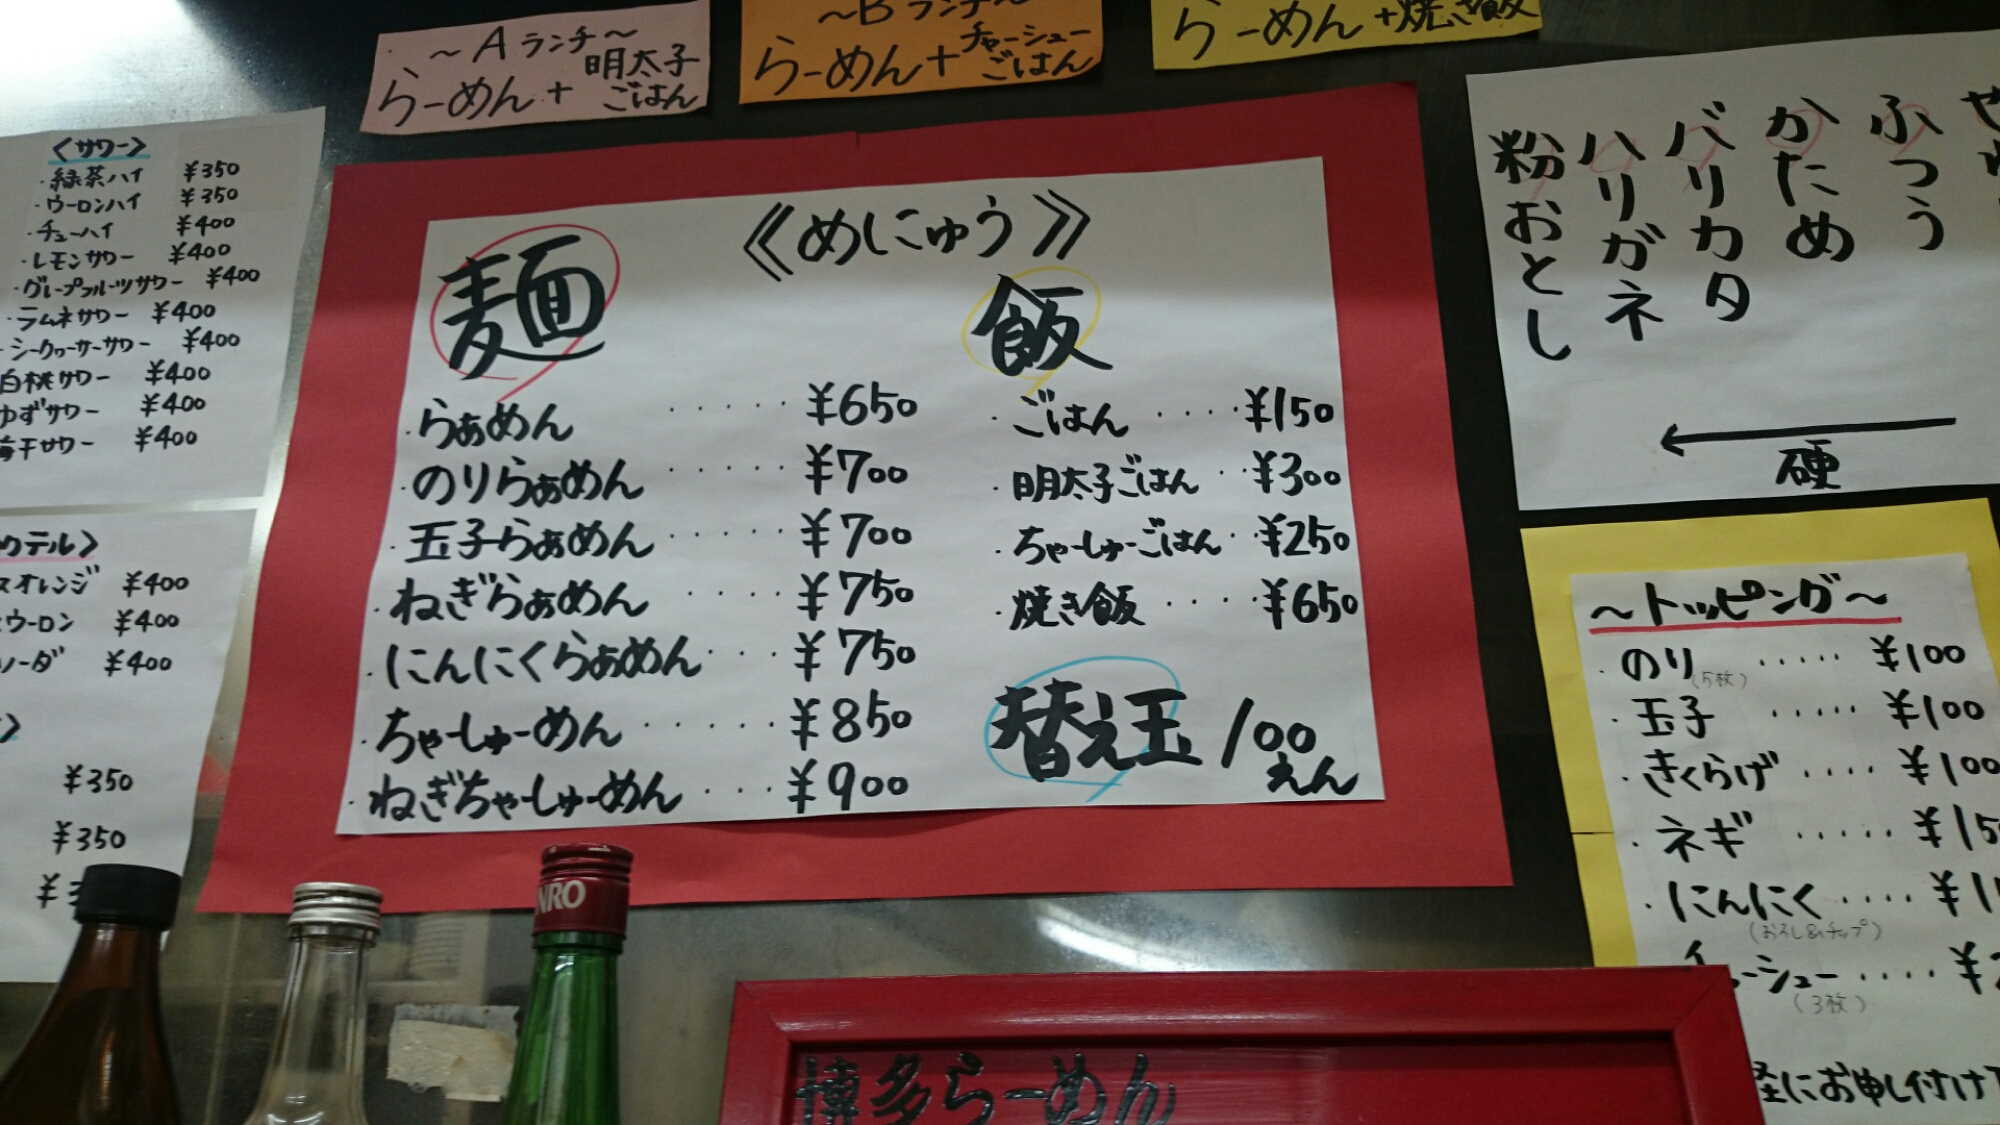 ～Aランチ～
らーめん+明太子ごはん
～Bランチ～
らーめん+チャーシューごはん
らーめん+焼き飯
<サワー>
・緑茶ハイ ¥350
・ウーロンハイ ¥350
・チューハイ ¥400
・レモンサワー ¥400
・グレープフルーツサワー ¥400
・ラムネサワー ¥400
・シークヮーサーサワー ¥400
白桃サワー ¥400
ゆずサワー ¥400
梅干サワー ¥400
クテル>
スオレンジ ¥400
スウーロン ¥400
ソーダ ¥400
>
¥350
¥350
¥3
《めにゅう》
麺
・らぁめん ・・・・・¥650
・のりらぁめん ・・・・・¥700
・玉子らぁめん ・・・・・¥700
・ねぎらぁめん ・・・・¥750
・にんにくらぁめん・・・¥750
・ちゃーしゅーめん・・・・・¥850
・ねぎちゃーしゅーめん・・・¥900
飯
・ごはん ・・・・¥150
・明太子ごはん・・¥300
・ちゃーしゅーごはん・・¥250
・焼き飯・・・・¥650
替え玉/100えん
ふつう
かため
バリカタ
ハリガネ
粉おとし
← 硬
～トッピング～
・のり(5枚) ・・・・・¥100
・玉子 ・・・・・¥100
・きくらげ・・・・¥100
・ネギ ・・・・・¥15
・にんにく・・・・¥1
(おろし&チップ)
チャーシュー・・・・¥
(3枚)
軽にお申し付け下
JINRO
博多らーめん